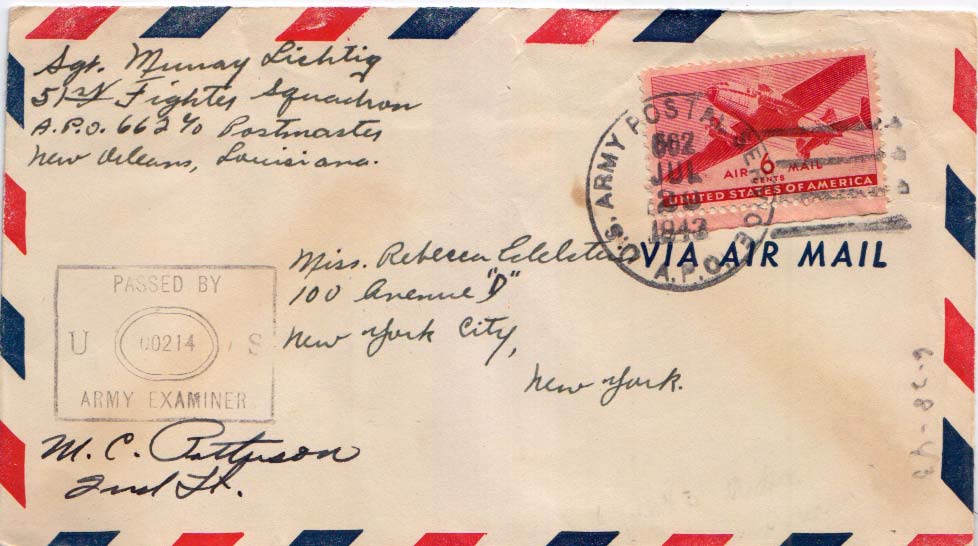 Sgt. Murray Lichtig
51st Fighter Squadron
A.P.O. 662 c/o Postmaster
New Orleans, Louisiana.
U.S. ARMY POSTAL SERVICE
A.P.O.
662
JUL
1943
AIR 6 MAIL
CENTS
UNITED STATES OF AMERICA
VIA AIR MAIL
Miss. Rebecca
100 Avenue "D"
New York City,
New York.
PASSED BY
U 00214 S
ARMY EXAMINER
M. C. Patterson
2nd Lt.